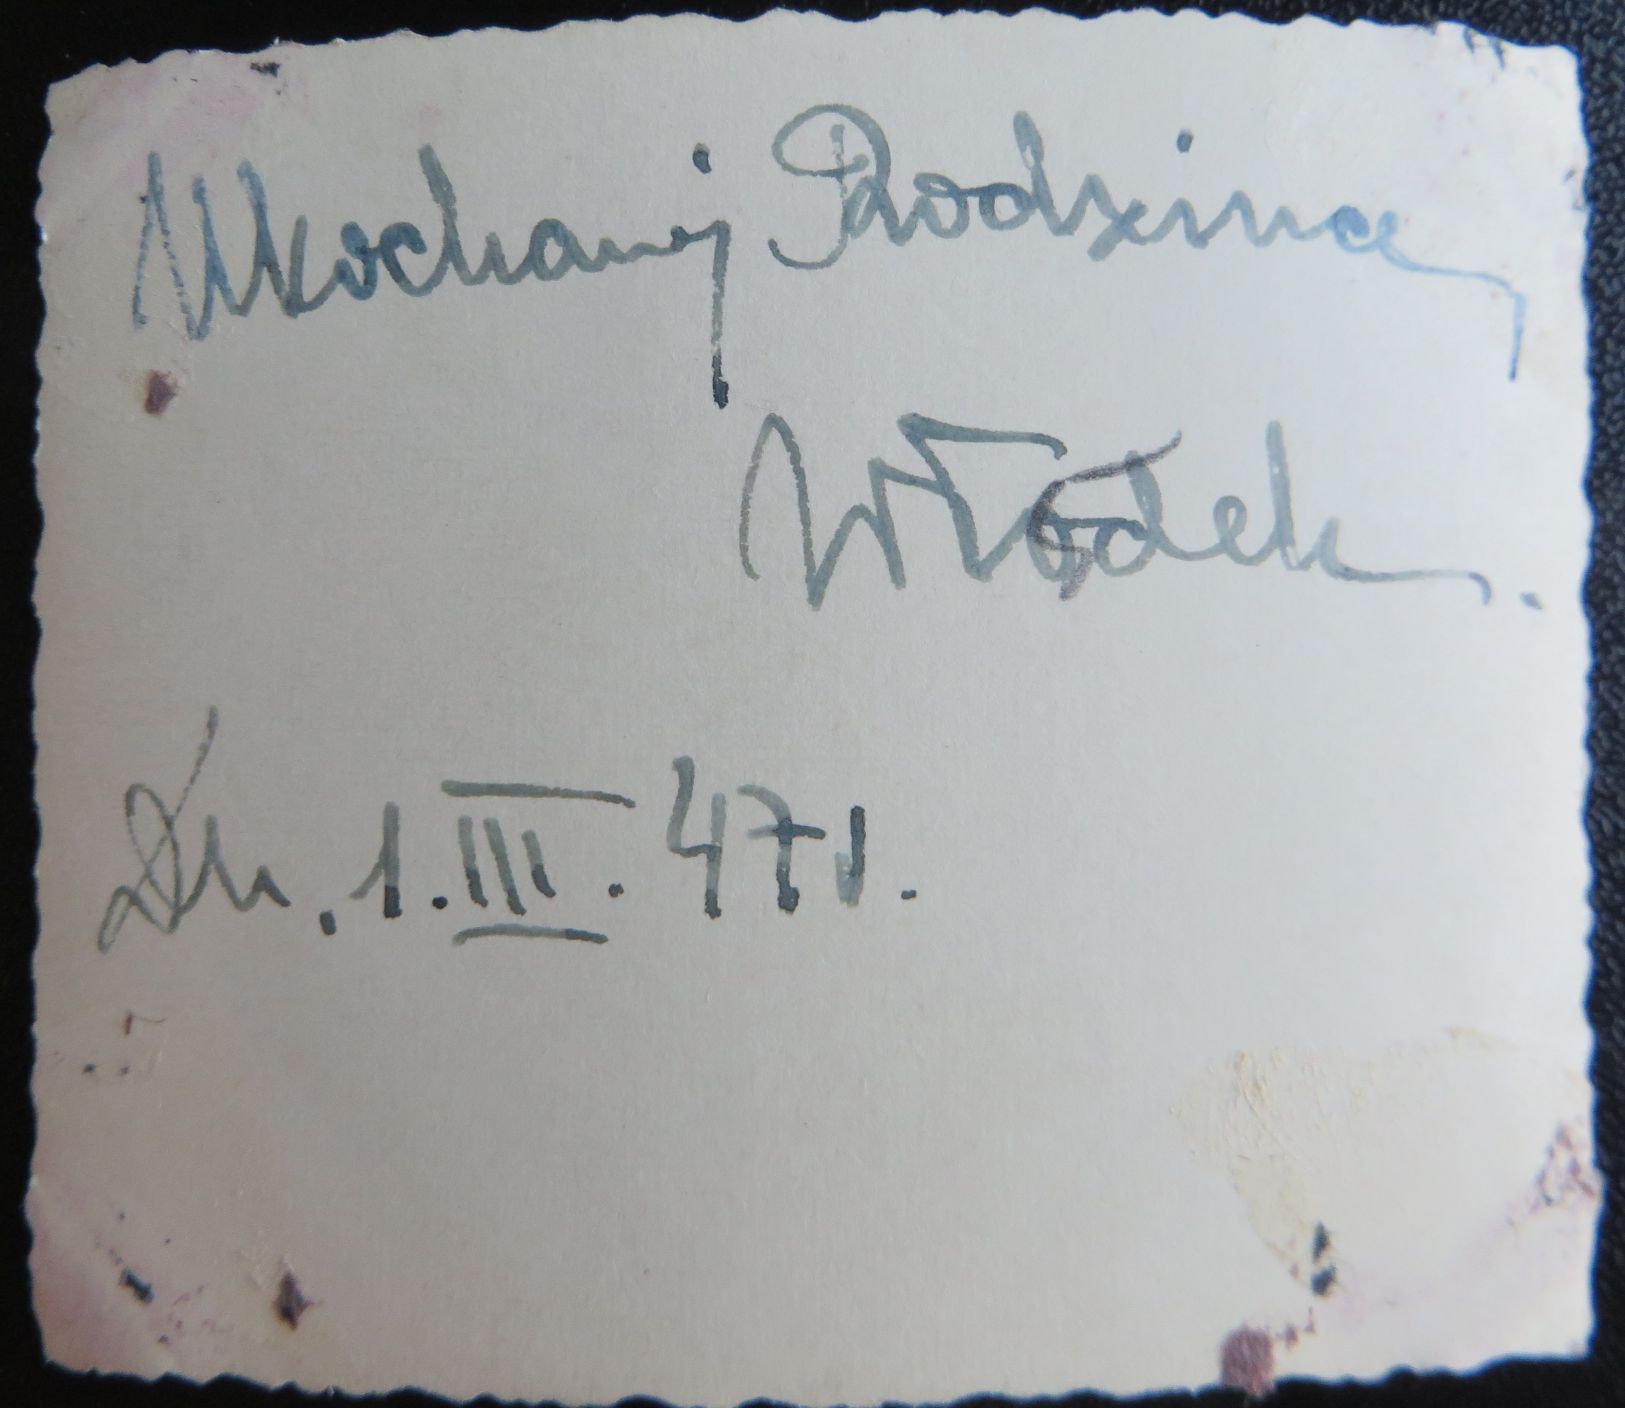 Ukochanej Rodzince
Włodek.
Dn. 1.III.47r.